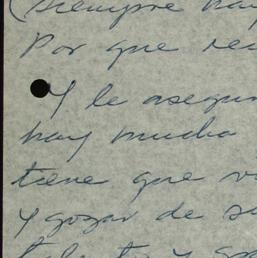 (siempre hay
Por que
Y le asegur
hay mucha
tiene que
y gozar de su